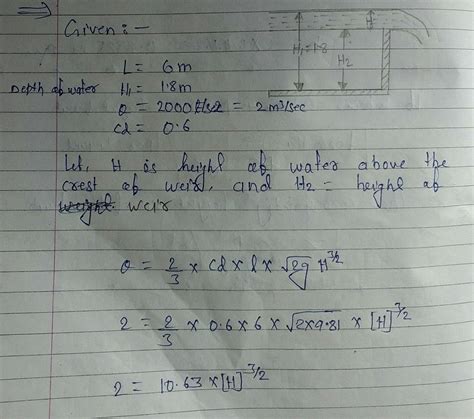 ⇒ Given :-
H
L = 6m
H₁ = 1.8
H₂
Depth of water H₁ = 1.8m
Q = 2000 = 2m³/sec
Cd = 0.6
Let, H is height of water above the
crest of weir, and H₂ = height of
weir
Q = 2/3 × Cd × l × √2g H^3/2
2 = 2/3 × 0.6 × 6 × √2×9.81 × [H]^3/2
2 = 10.63 × [H]^3/2